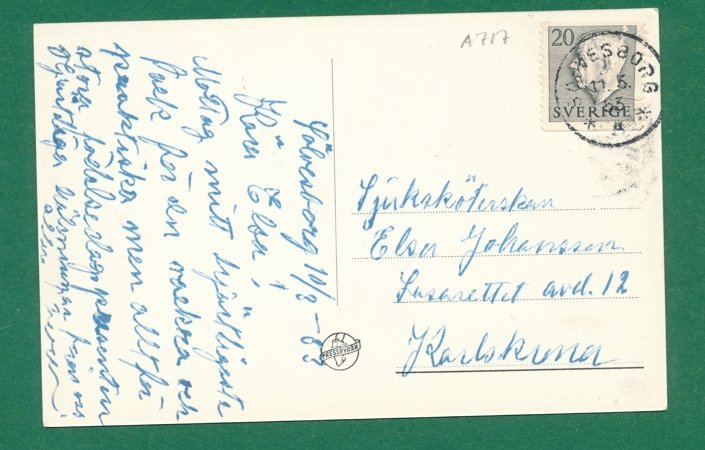 A717
20
SVERIGE
SÖLVESBORG
Sölvesborg 10/3-53
Kära Elsa,
Mottag mitt hjärtligaste
tack för den vackra och
praktiska men allt för
stora födelsedagspresenten
Hjärtliga hälsningar från oss
alla
Sjuksköterskan
Elsa Johansson
Lasarettet avd. 12
Karlskrona
PRESSBYRÅN